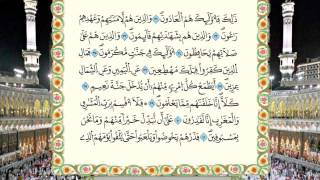 ذَٰلِكَ فَأُولَٰئِكَ هُمُ الْعَادُونَ وَالَّذِينَ هُمْ لِأَمَٰنَٰتِهِمْ وَعَهْدِهِمْ
رَٰعُونَ وَالَّذِينَ هُم بِشَهَٰدَٰتِهِمْ قَائِمُونَ وَالَّذِينَ هُمْ عَلَىٰ
صَلَاتِهِمْ يُحَافِظُونَ أُولَٰئِكَ فِي جَنَّٰتٍ مُّكْرَمُونَ فَمَالِ
الَّذِينَ كَفَرُوا قِبَلَكَ مُهْطِعِينَ عَنِ الْيَمِينِ وَعَنِ الشِّمَالِ
عِزِينَ أَيَطْمَعُ كُلُّ امْرِئٍ مِّنْهُمْ أَن يُدْخَلَ جَنَّةَ نَعِيمٍ
كَلَّا إِنَّا خَلَقْنَٰهُم مِّمَّا يَعْلَمُونَ فَلَا أُقْسِمُ بِرَبِّ الْمَشَٰرِقِ
وَالْمَغَٰرِبِ إِنَّا لَقَٰدِرُونَ عَلَىٰ أَن نُّبَدِّلَ خَيْرًا مِّنْهُمْ وَمَا نَحْنُ
بِمَسْبُوقِينَ فَذَرْهُمْ يَخُوضُوا وَيَلْعَبُوا حَتَّىٰ يُلَٰقُوا يَوْمَهُمُ الَّذِي